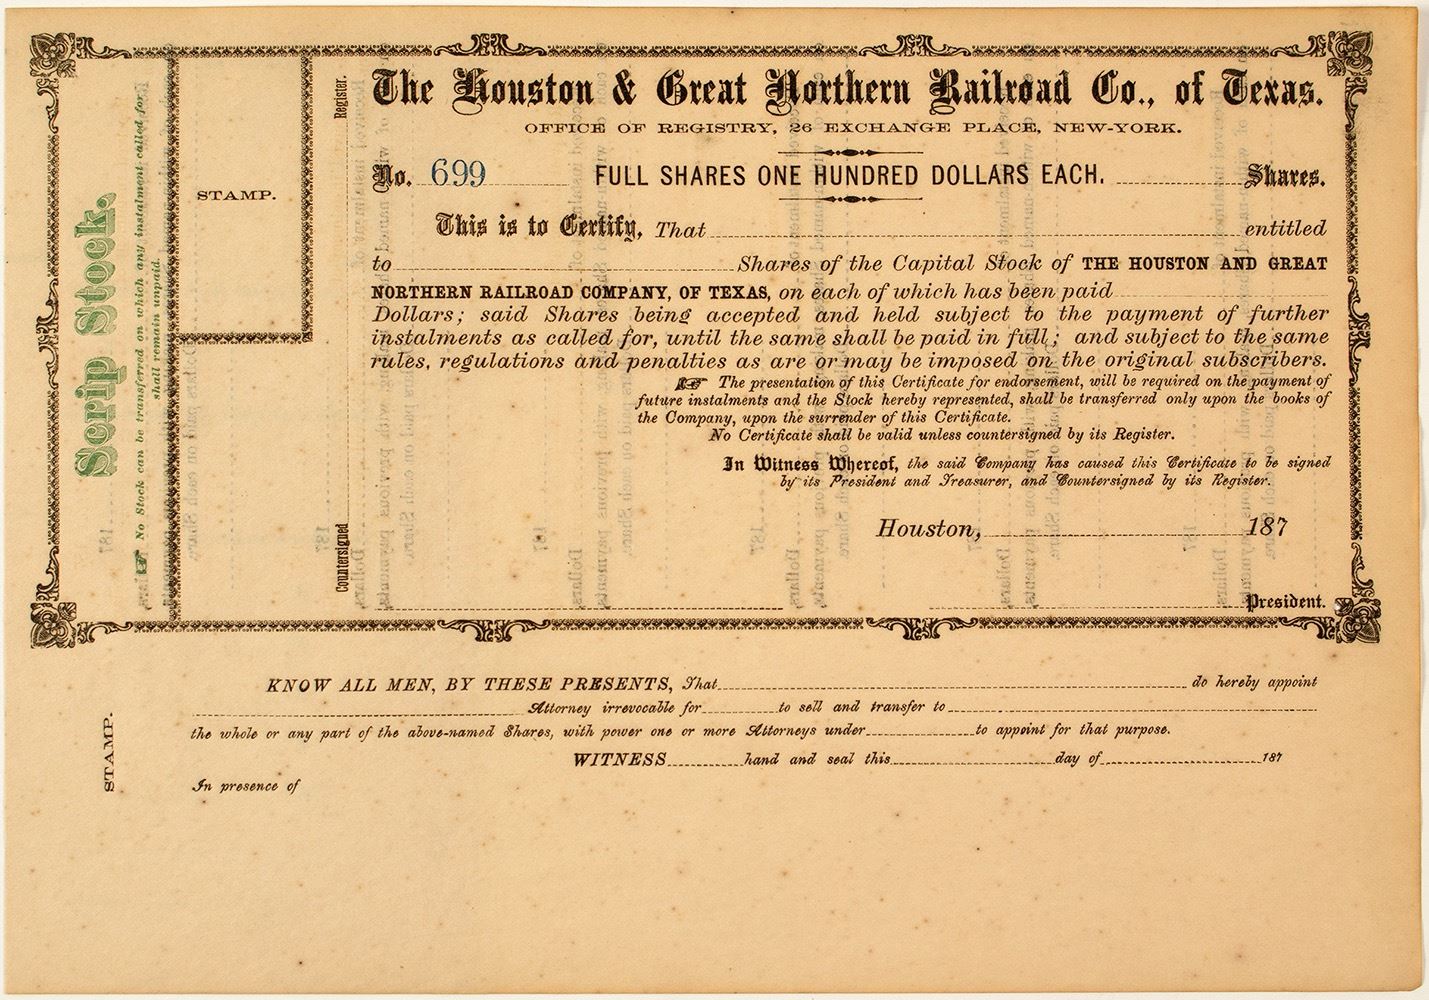 The Houston & Great Northern Railroad Co., of Texas.
OFFICE OF REGISTRY, 26 EXCHANGE PLACE, NEW-YORK.
No. 699 FULL SHARES ONE HUNDRED DOLLARS EACH. Shares.
This is to Certify, That entitled
to Shares of the Capital Stock of THE HOUSTON AND GREAT
NORTHERN RAILROAD COMPANY, OF TEXAS, on each of which has been paid
Dollars; said Shares being accepted and held subject to the payment of further
instalments as called for, until the same shall be paid in full; and subject to the same
rules, regulations and penalties as are or may be imposed on the original subscribers.
☞ The presentation of this Certificate for endorsement, will be required on the payment of
future instalments and the Stock hereby represented, shall be transferred only upon the books of
the Company, upon the surrender of this Certificate.
No Certificate shall be valid unless countersigned by its Register.
In Witness Whereof, the said Company has caused this Certificate to be signed
by its President and Treasurer, and Countersigned by its Register.
Houston, 187
President.
Countersigned Register.
STAMP.
Scrip Stock.
☞ No Stock can be transferred on which any instalment called for
shall remain unpaid.
KNOW ALL MEN, BY THESE PRESENTS, That do hereby appoint
Attorney irrevocable for to sell and transfer to
the whole or any part of the above-named Shares, with power one or more Attorneys under to appoint for that purpose.
WITNESS hand and seal this day of 187
In presence of
STAMP.